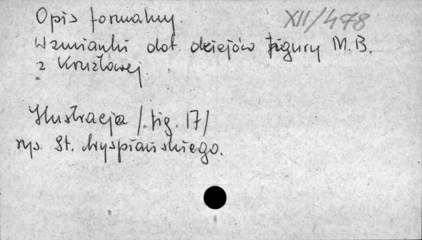 Opis formalny. XII/478
Wzmianki dot. dziejów figury M.B.
z Krużlowej
Ilustracja /fig. 17/
rys. St. Wyspiańskiego.